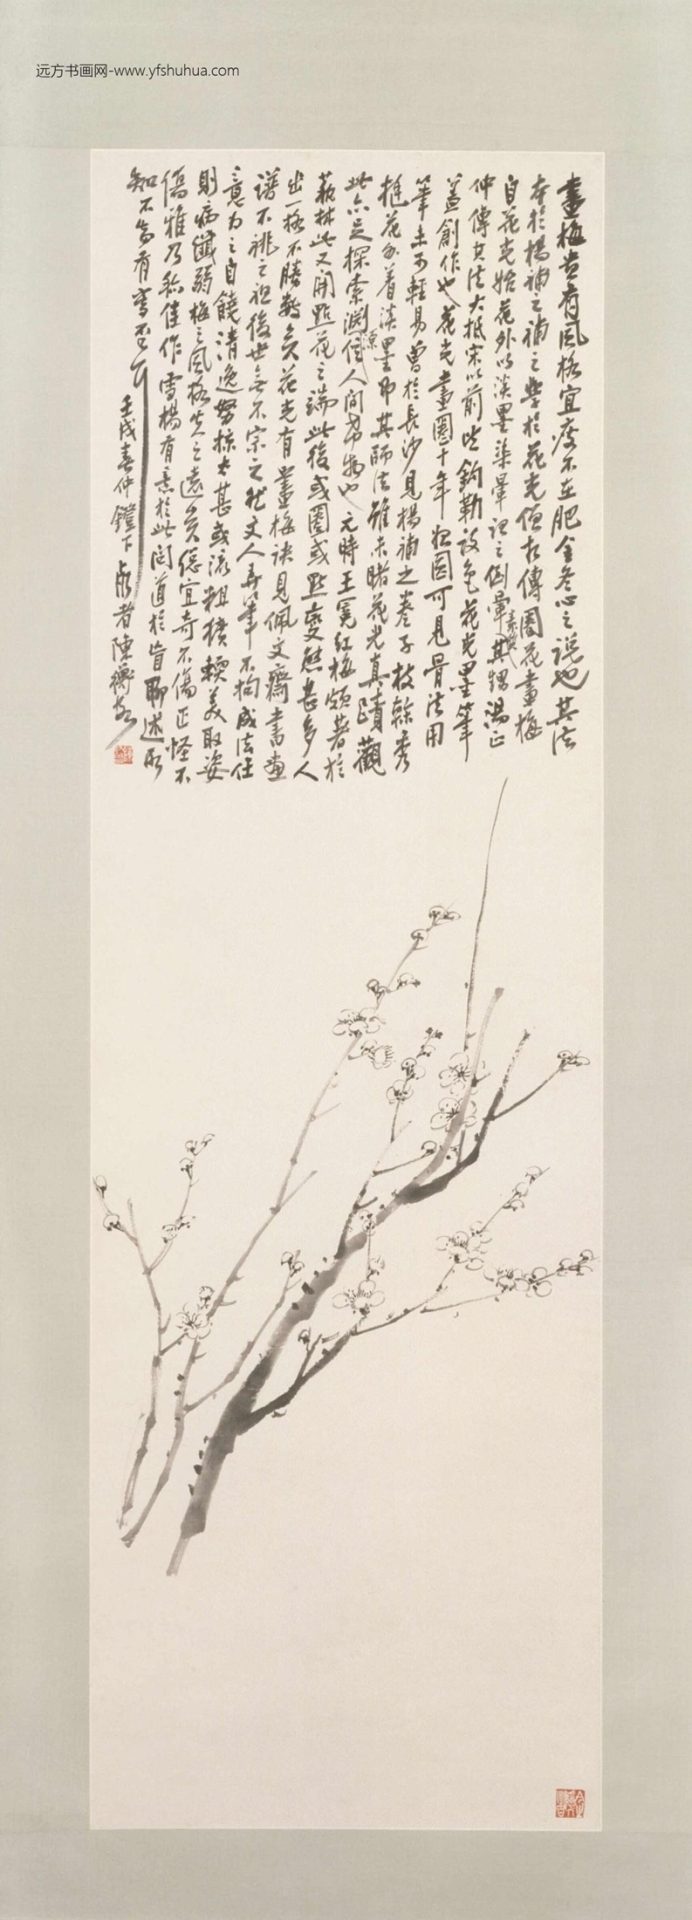 远方书画网-www.yfshuhua.com
畫梅貴有風格宜瘦不在肥全老心之說也其法
本於楊補之補之學於花光偃在傳圈花畫梅
自花光始花外以淡墨染暈記之倒暈其甥湯正
仲傳其法大抵宋以前皆鈎勒設色花光墨筆
蓋創作也花光畫圈十年始圓可見骨法用
筆未可輕易曾於長沙見楊補之卷子枝榦秀
挺花外着淡墨即其師法雖未睹花光真蹟觀
此亦足探索淵源人間希物也元時王冕紅梅頗著於
藝林此又開點花之端此後或圈或點變態甚多人
出一格不勝數矣花光有畫梅訣見佩文齋書畫
譜不祧之祖後世無不宗之然文人弄筆不拘成法任
意為之自饒清逸努掠太甚或流粗獷輭美取姿
則病纖弱梅之風格失之遠矣總宜奇不傷正怪不
傷雅乃稱佳作雪楊有意於此問道於盲聊述所
知不知有當不
壬戌春仲鐙下 者陳衡恪